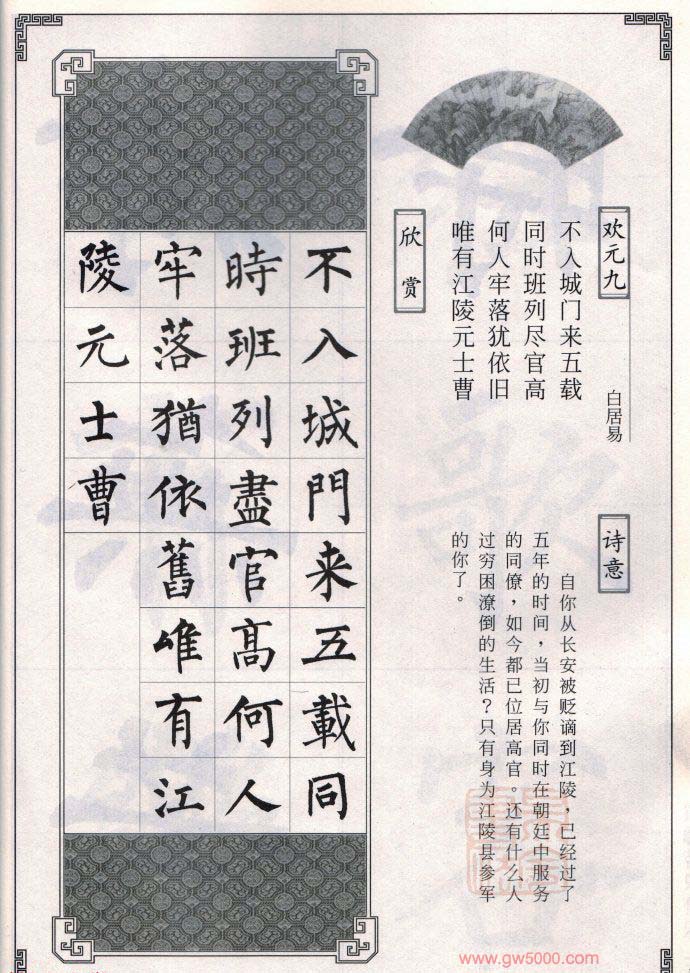 欢元九
白居易
不入城门来五载
同时班列尽官高
何人牢落犹依旧
唯有江陵元士曹
诗意
自你从长安被贬谪到江陵，已经过了
五年的时间，当初与你同时在朝廷中服务
的同僚，如今都已位居高官。还有什么人
过穷困潦倒的生活？只有身为江陵县参军
的你了。
欣赏
不入城門来五載同
時班列盡官高何人
牢落猶依舊唯有江
陵元士曹
www.gw5000.com